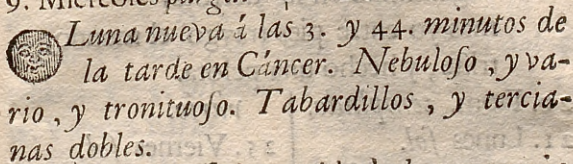 9. Miercoles
Luna nueva á las 3. y 44. minutos de
la tarde en Cáncer. Nebuloſo, y va-
rio, y tronituoſo. Tabardillos, y tercia-
nas dobles.